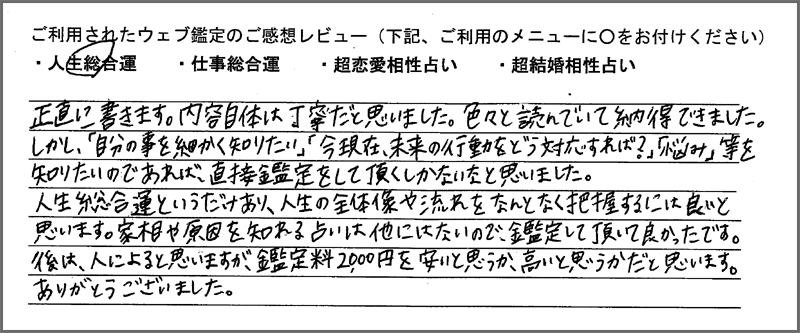 ご利用されたウェブ鑑定のご感想レビュー(下記、ご利用のメニューに〇をお付けください)
・人生総合運 ・仕事総合運 ・超恋愛相性占い ・超結婚相性占い
正直に書きます。内容自体は丁寧だと思いました。色々と読んでいて納得できました。
しかし、「自分の事を細かく知りたい」「今現在、未来の行動をどう対応すれば?」「悩み」等を
知りたいのであれば、直接鑑定をして頂くしかないなと思いました。
人生総合運というだけあり、人生の全体像や流れをなんとなく把握するには良いと
思います。家相や原因を知れる占いは他にはないので、鑑定して頂いて良かったです。
後は、人によると思いますが、鑑定料2,000円を安いと思うか、高いと思うかだと思います。
ありがとうございました。